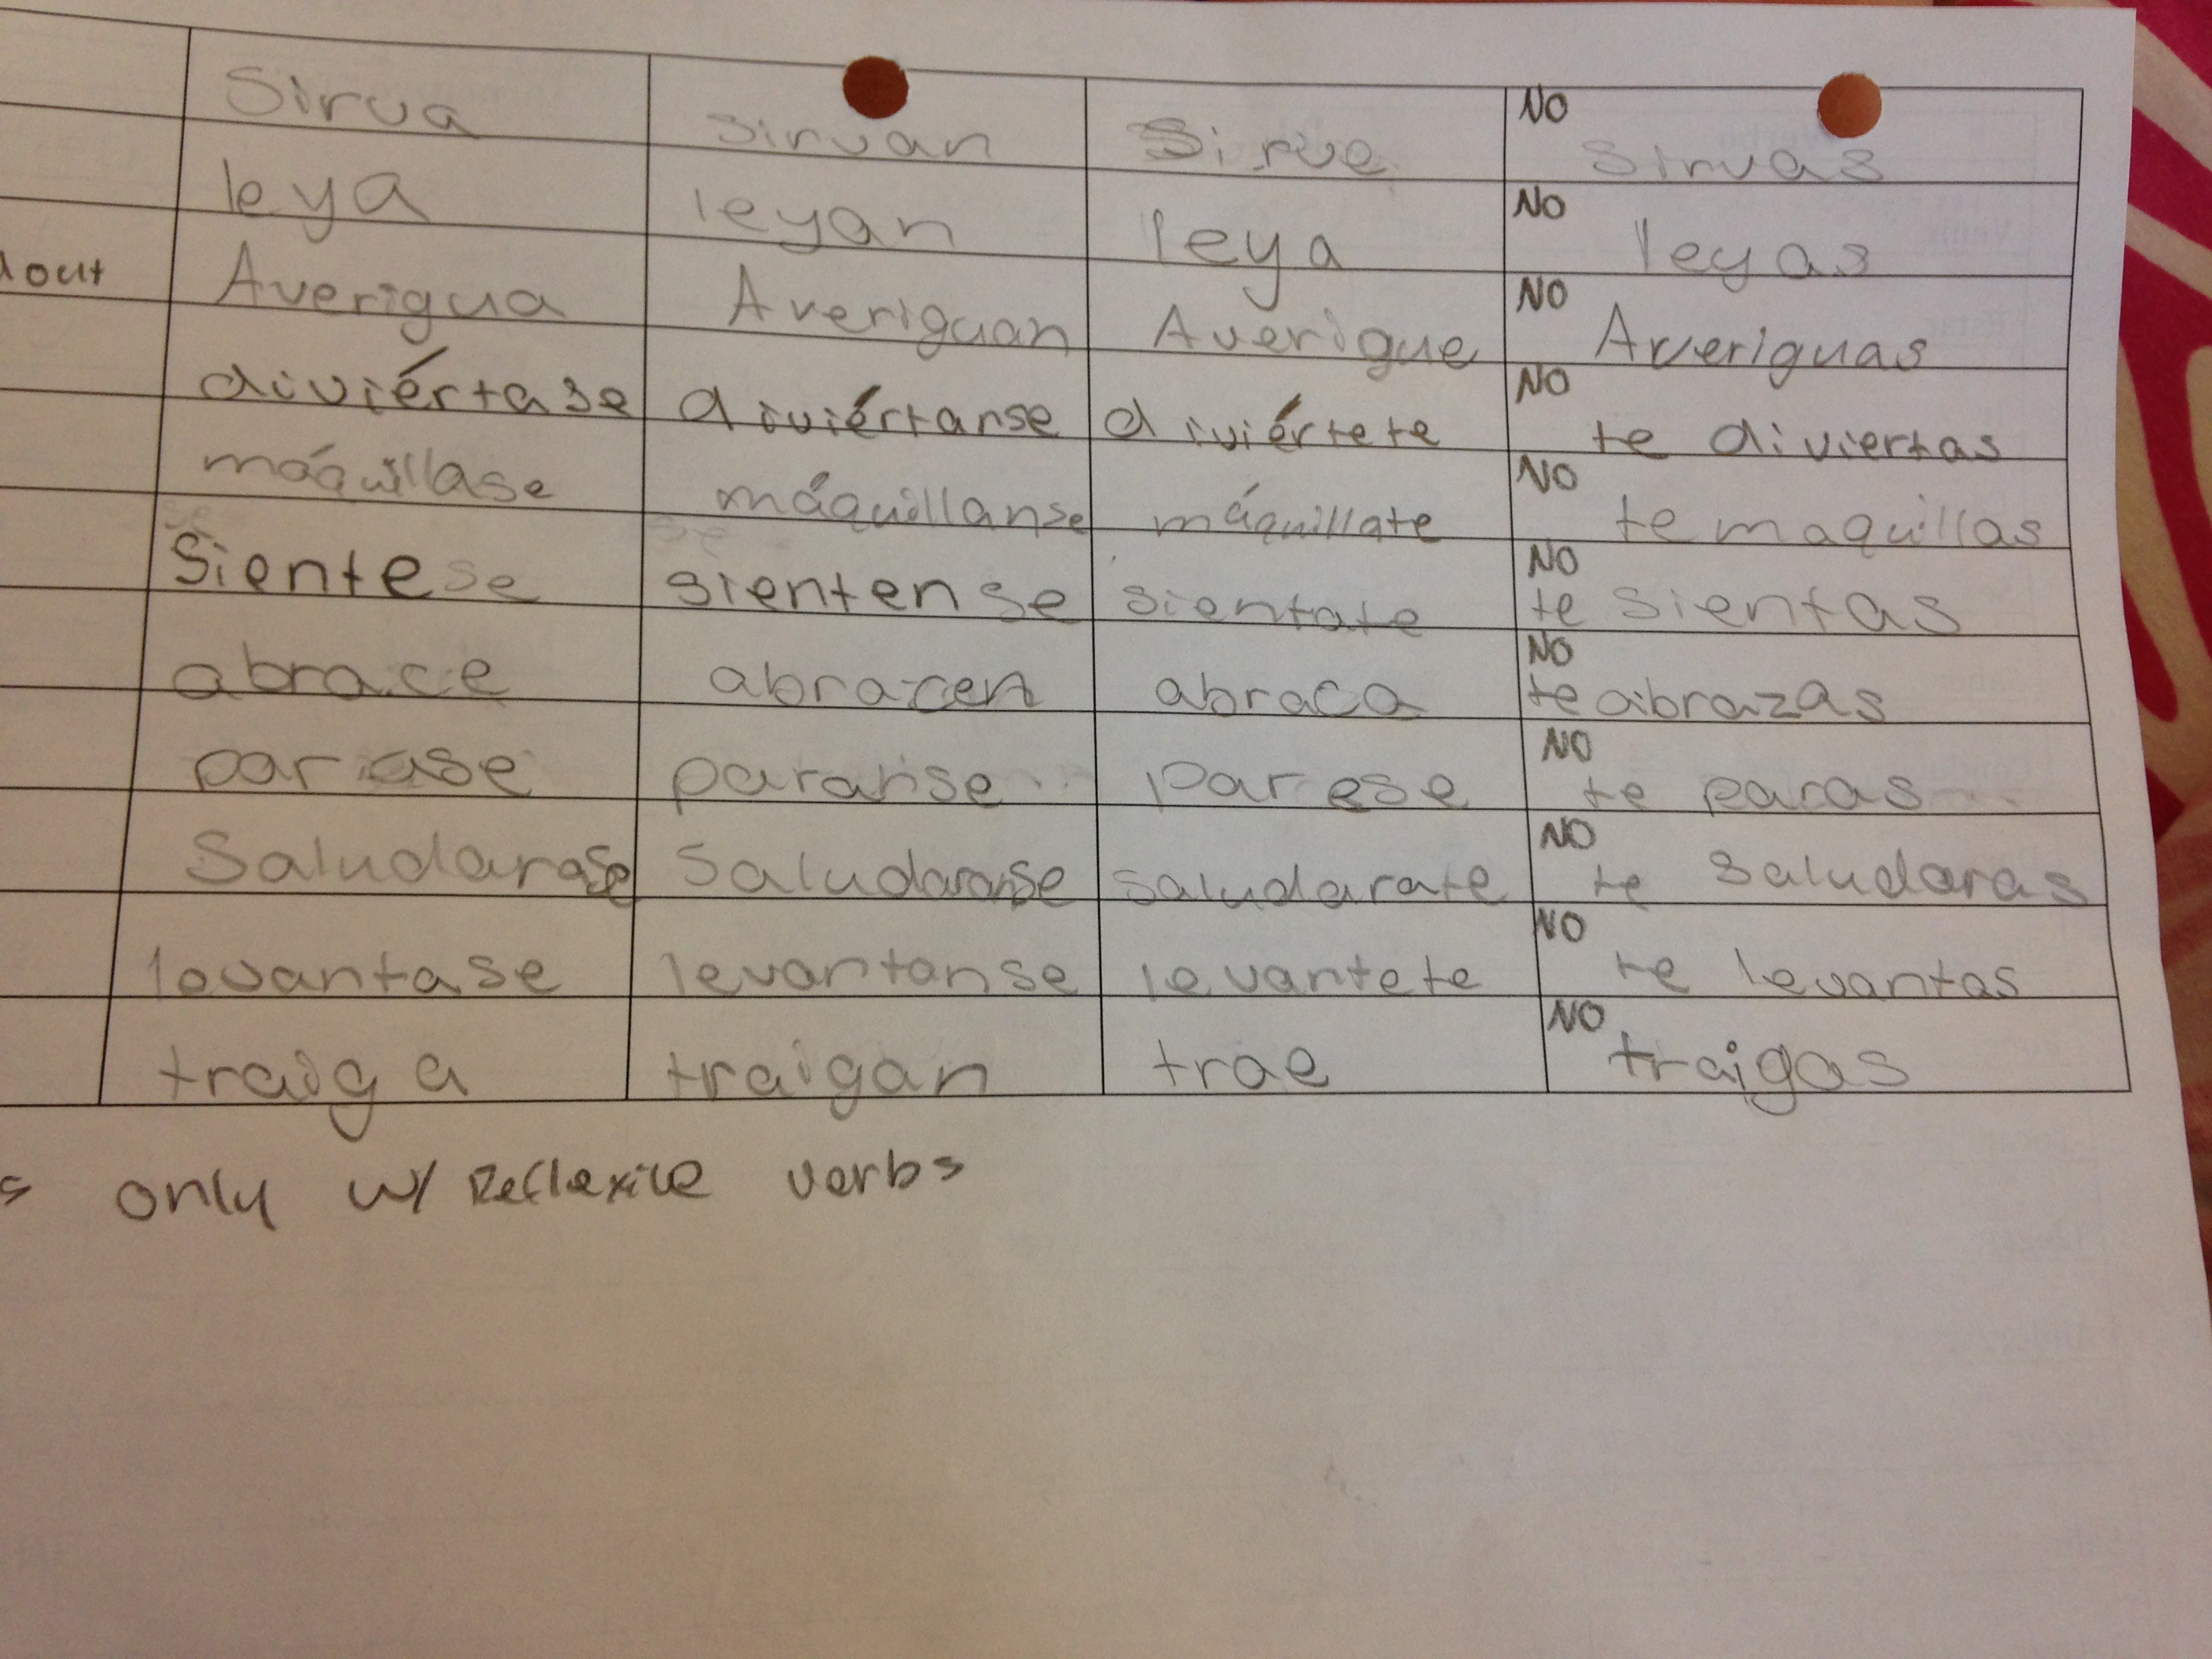 Sirva sirvan Sirve NO sirvas
leya leyan leya NO leyas
out Averigua Averiguan Averigue NO Averiguas
diviértase diviértanse diviértete NO te diviertas
máquillase máquillanse máquillate NO te maquillas
Sientese sientense sientate NO te sientas
abrace abracen abraca NO te abrazas
parase paranse parese NO te paras
Saludarase Saludaranse saludarate NO te saludaras
levantase levantanse levantete NO te levantas
traiga traigan trae NO traigas
only w/ Reflexive verbs